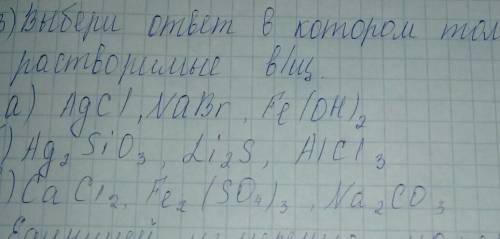 3) Выбери ответ в котором тол
растворимые в/щ.
а) AgCl, NaBr, Fe(OH)2
) Ag2SiO3, Li2S, AlCl3
) CaCl2, Fe2(SO4)3, Na2CO3